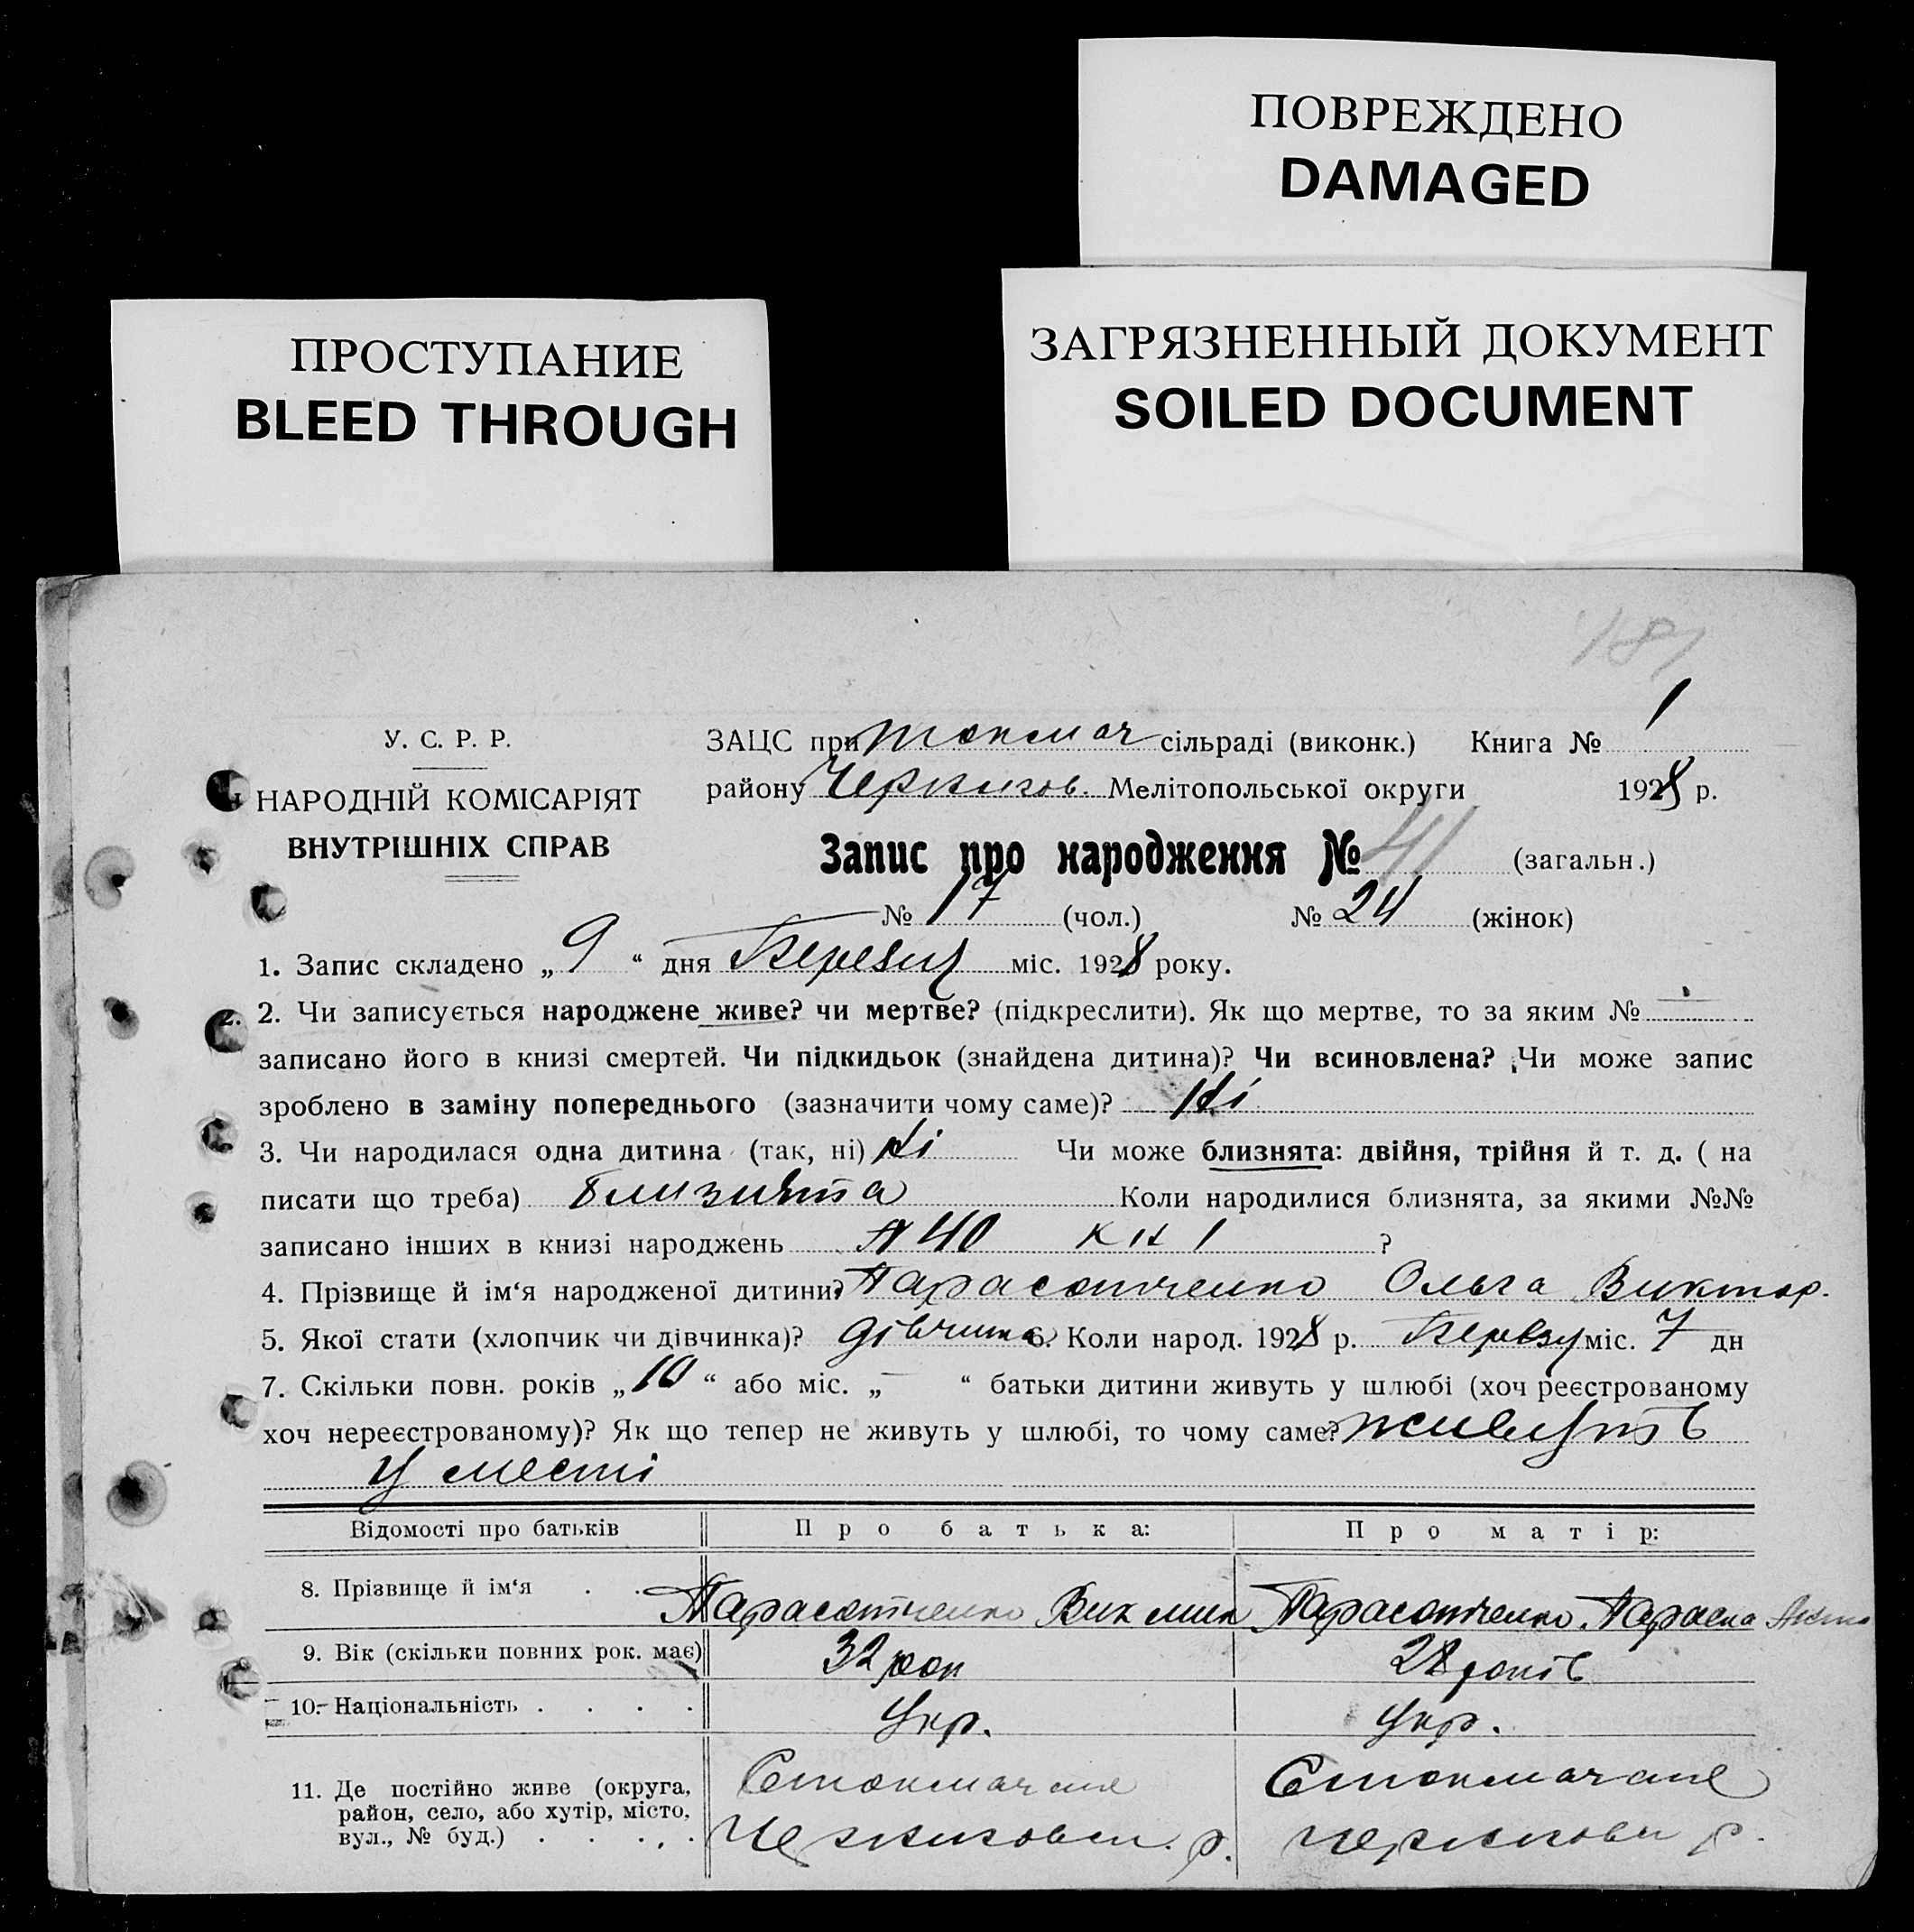 ПОВРЕЖДЕНО
DAMAGED
ПРОСТУПАНИЕ
BLEED THROUGH
ЗАГРЯЗНЕННЫЙ ДОКУМЕНТ
SOILED DOCUMENT
181
У. С. Р. Р.
НАРОДНІЙ КОМІСАРІЯТ
ВНУТРІШНІХ СПРАВ
ЗАЦС при Токмач сільраді (виконк.) Книга № 1
району Чернигов. Мелітопольської округи 1928 р.
Запис про народження № 41 (загальн.)
№ 17 (чол.) № 24 (жінок)
1. Запис складено „ 9 “ дня Березня міс. 1928 року.
2. Чи записується народжене живе? чи мертве? (підкреслити). Як що мертве, то за яким №
записано його в книзі смертей. Чи підкидьок (знайдена дитина)? Чи всиновлена? Чи може запис
зроблено в заміну попереднього (зазначити чому саме)? Ні
3. Чи народилася одна дитина (так, ні) Ні Чи може близнята: двійня, трійня й т. д. ( на
писати що треба) близнята Коли народилися близнята, за якими №№
записано інших в книзі народжень № 40 кн 1 ?
4. Прізвище й ім‘я народженої дитини? Тарасотченко Ольга Виктор.
5. Якої стати (хлопчик чи дівчинка)? дівчина 6. Коли народ. 1928 р. Березня міс. 7 дн
7. Скільки повн. років „ 10 “ або міс. „ — “ батьки дитини живуть у шлюбі (хоч реєстрованому
хоч нереєстрованому)? Як що тепер не живуть у шлюбі, то чому саме? живуть
у месті
Відомості про батьків Про батька: Про матір:
8. Прізвище й ім‘я . . Тарасотченко Тарасотченко
9. Вік (скільки повних рок. має) 32 рок 28 років
10. Національність . . . . Укр. Укр.
11. Де постійно живе (округа,
район, село, або хутір, місто,
вул., № буд.) . . . .
Стокмачане Стокмачане
Черниговск. р. Черниговск р.